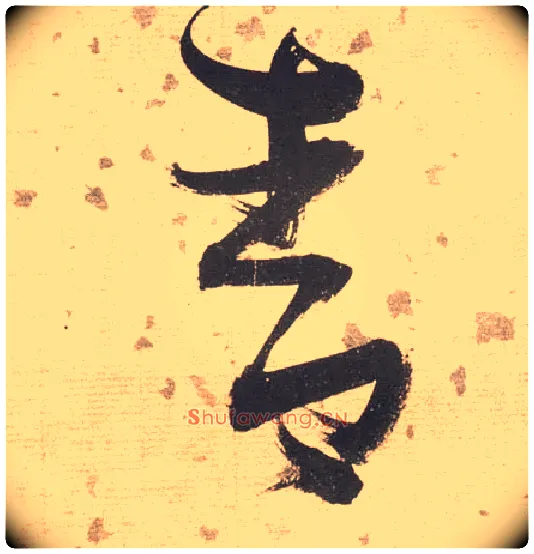 喜
Shufawang.CN